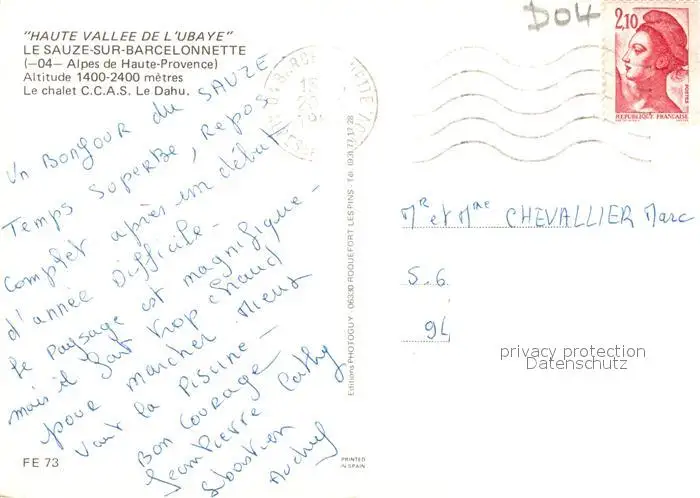 "HAUTE VALLEE DE L'UBAYE"
LE SAUZE-SUR-BARCELONNETTE
(—04— Alpes de Haute-Provence)
Altitude 1400-2400 mètres
Le chalet C.C.A.S. Le Dahu.
Un Bonjour du SAUZE -
Temps superbe, Repos
complet après un début
d'année Difficile -
le paysage est magnifique -
mais il fait trop chaud
pour marcher Mieux
vaut la Piscine -
Bon Courage
Jean Pierre Cathy
Sébastien
Audrey
FE 73
PRINTED
IN SPAIN
Editions PHOTOGUY - 06330 ROQUEFORT LES PINS - Tél. (93) 77.17.28
D04
2,10
REPUBLIQUE FRANÇAISE
Mr et Mme CHEVALLIER Marc
S.6.
94
privacy protection
Datenschutz